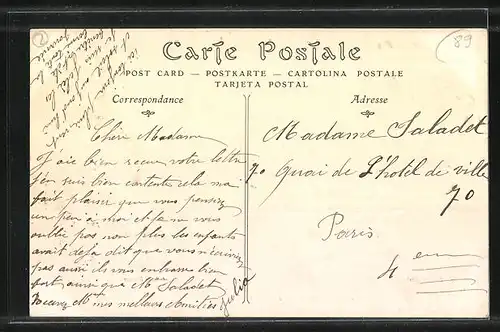 Carte Postale
POST CARD — POSTKARTE — CARTOLINA POSTALE
TARJETA POSTAL
Correspondance
Adresse
89
2
Chère Madame
J'aie bien recue votre lettre
j'en suis bien contente cela ma
fait plaisir que vous pensiez
un peu à moi et je ne vous
oublié pas non plus les enfants
avait deja dit que vous n'écriviez
pas aussi ils vous embrasse bien
fort ainsi que Mr Saladet
Recevez Me mes meilleurs Amitiés
Julia
Madame Saladet
70 quai de L'hotel de ville
70
Paris
4 em